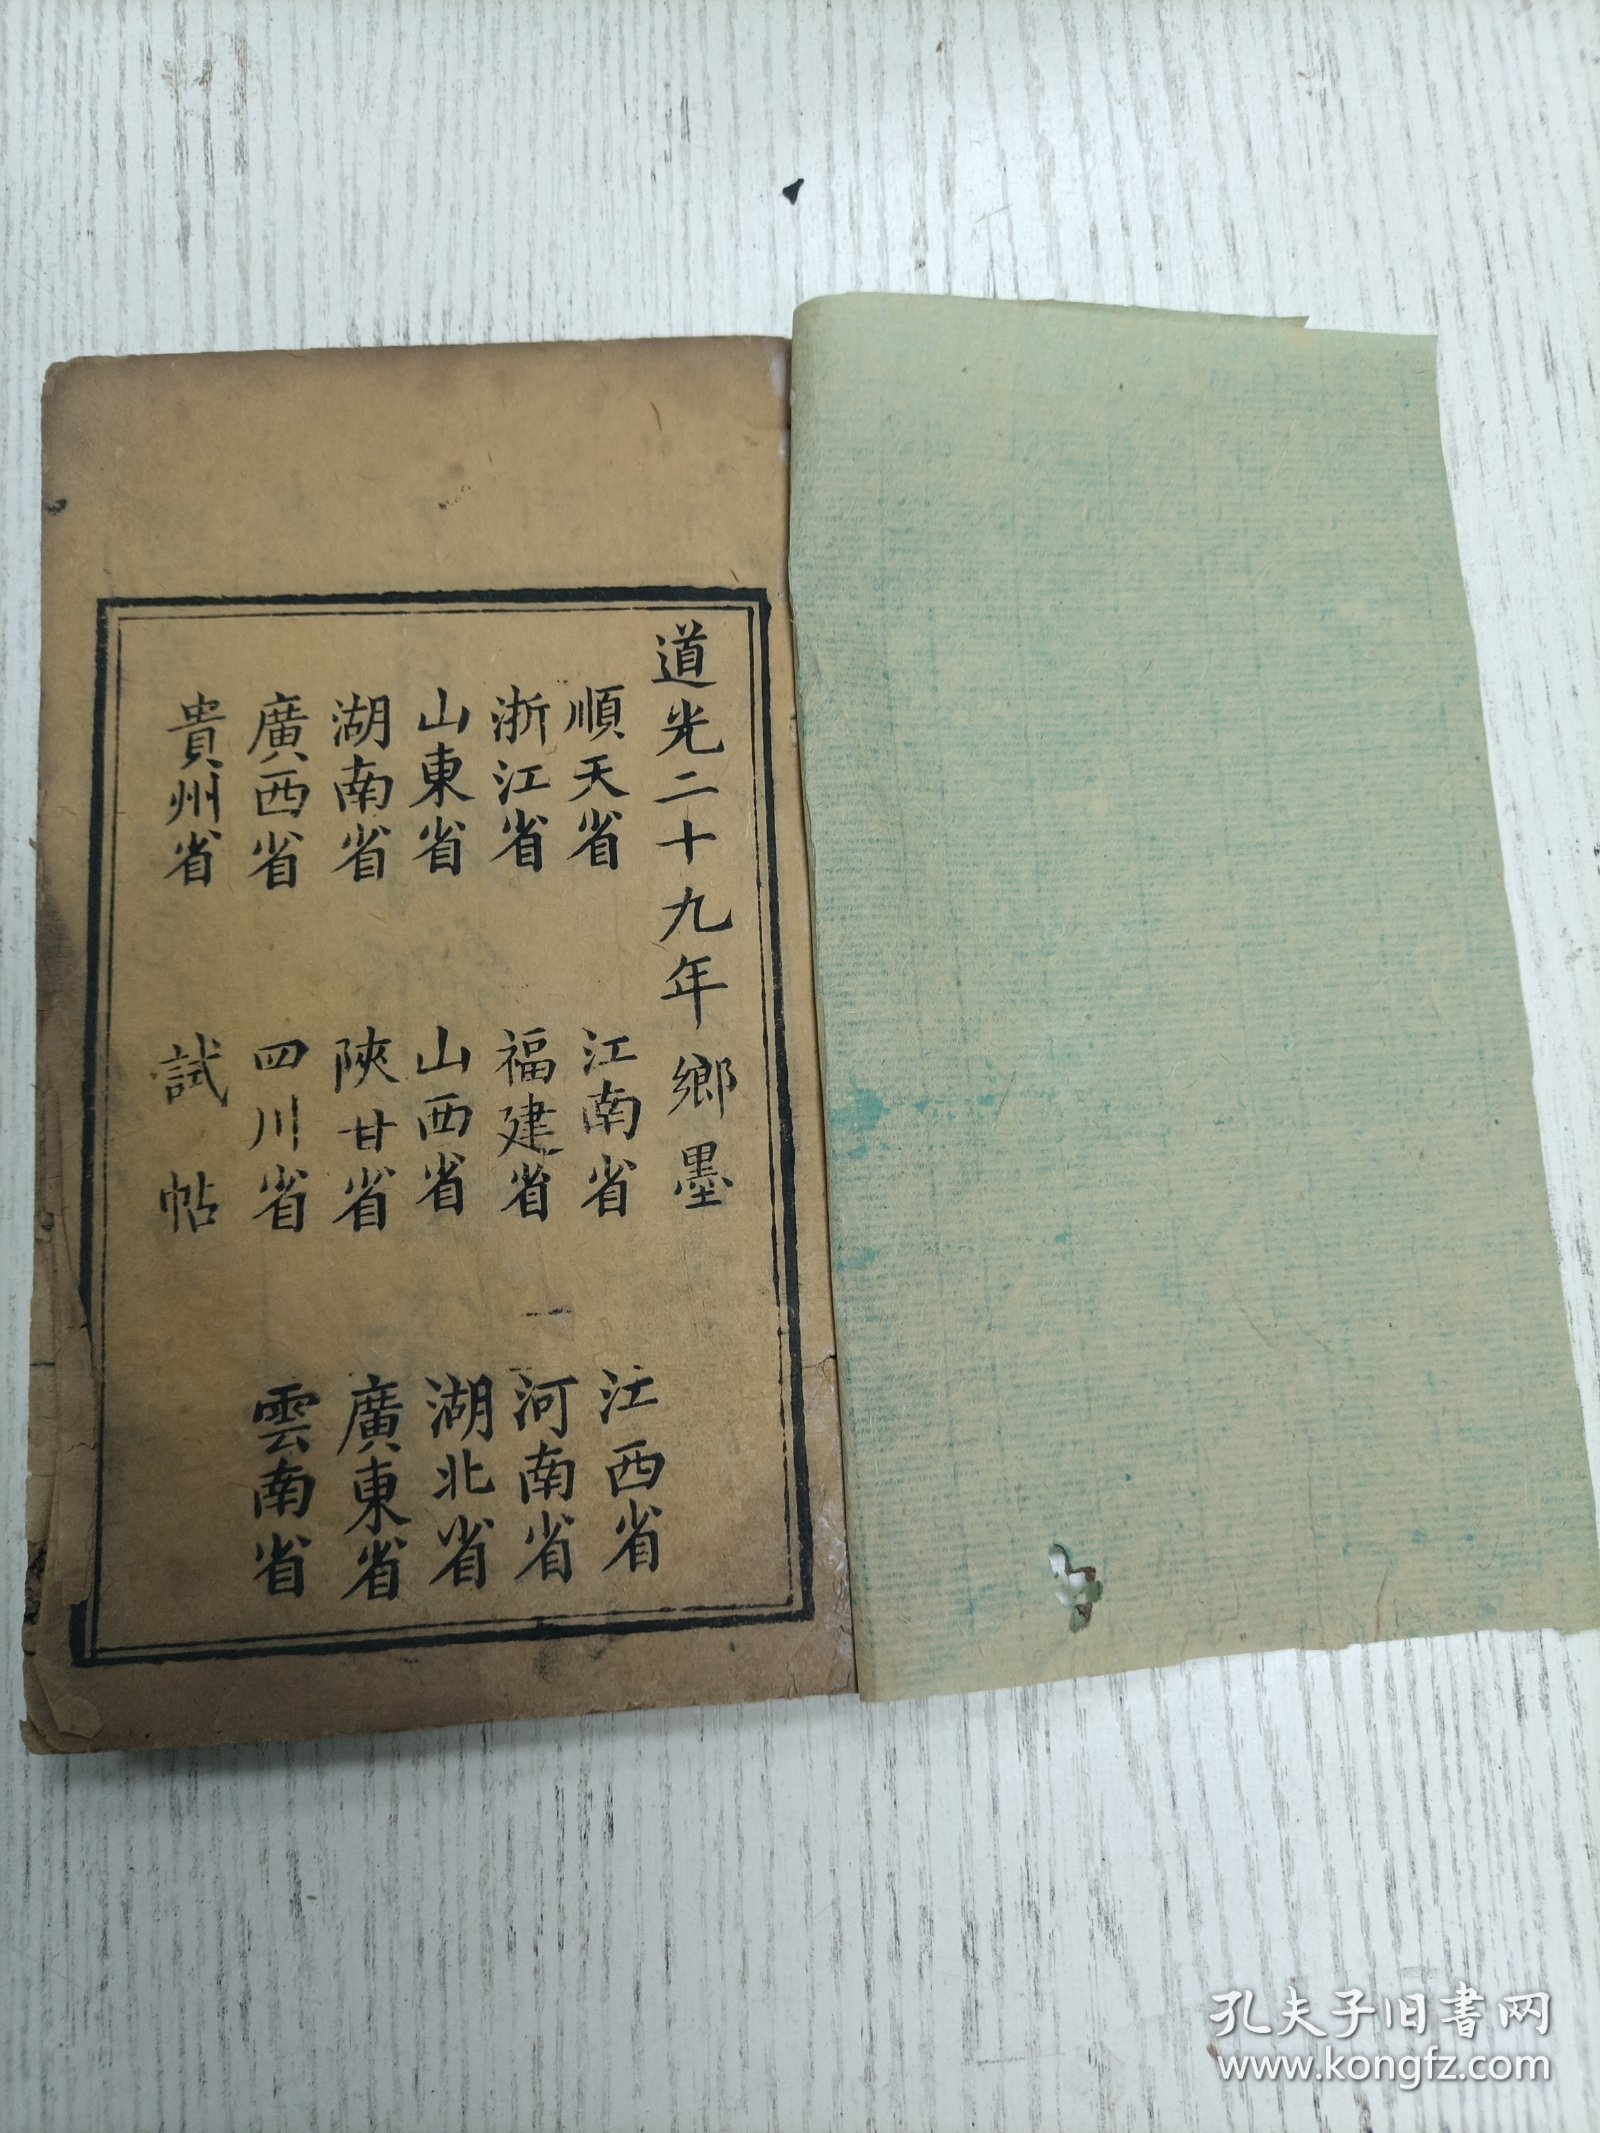 道光二十九年鄉墨
順天省 江南省 江西省
浙江省 福建省 河南省
山東省 山西省 湖北省
湖南省 陝甘省 廣東省
廣西省 四川省 雲南省
貴州省 試帖
孔夫子旧书网
www.kongfz.com